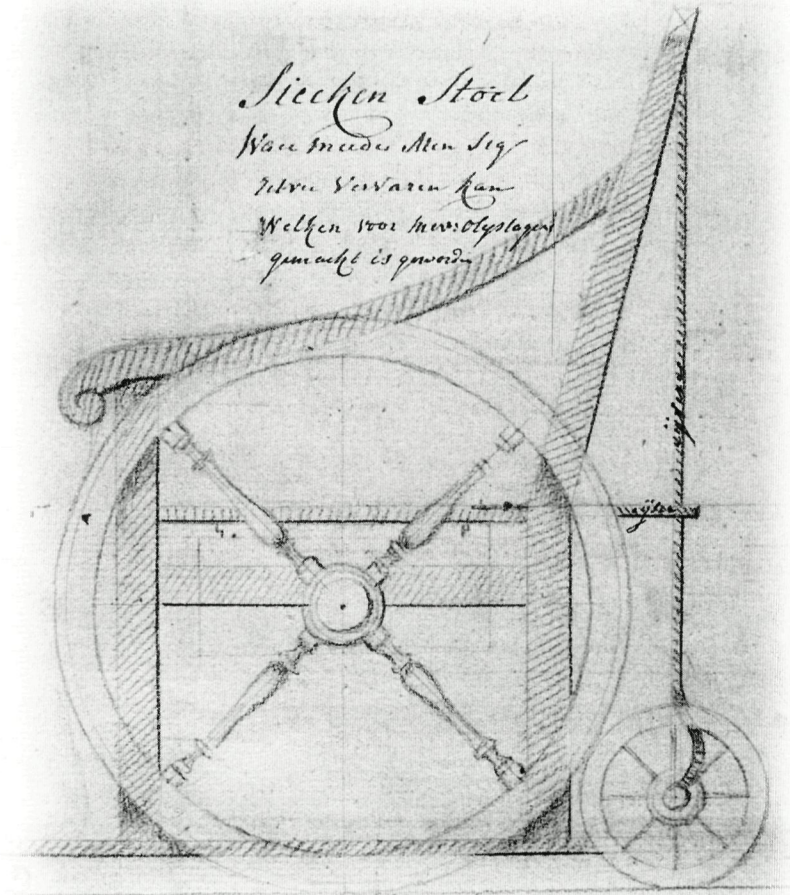 Siecken Stoel
Waer meede Men Sig
Selver Vervaren kan
Welken voor Mevr: Olyslagers
gemackt is geworden
ÿser
ÿser